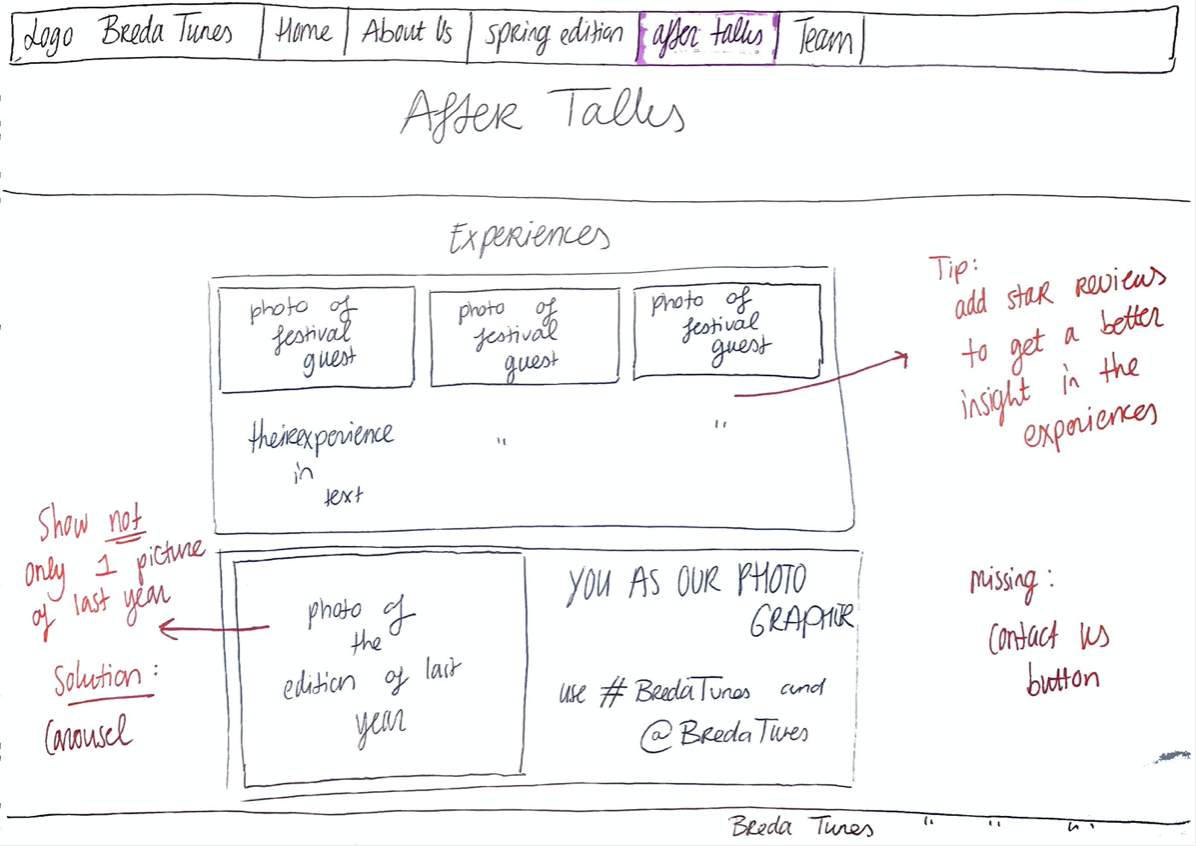 Logo Breda Tunes Home About Us spring edition after talks Team
After Talks
Experiences
photo of
festival
guest
photo of
festival
guest
photo of
festival
guest
their experience
in
text
"
"
Tip:
add star reviews
to get a better
insight in the
experiences
Show not
only 1 picture
of last year
Solution:
Carousel
photo of
the
edition of last
year
YOU AS OUR PHOTO
GRAPHER
use #BredaTunes and
@BredaTunes
Missing:
Contact us
button
Breda Tunes " " "